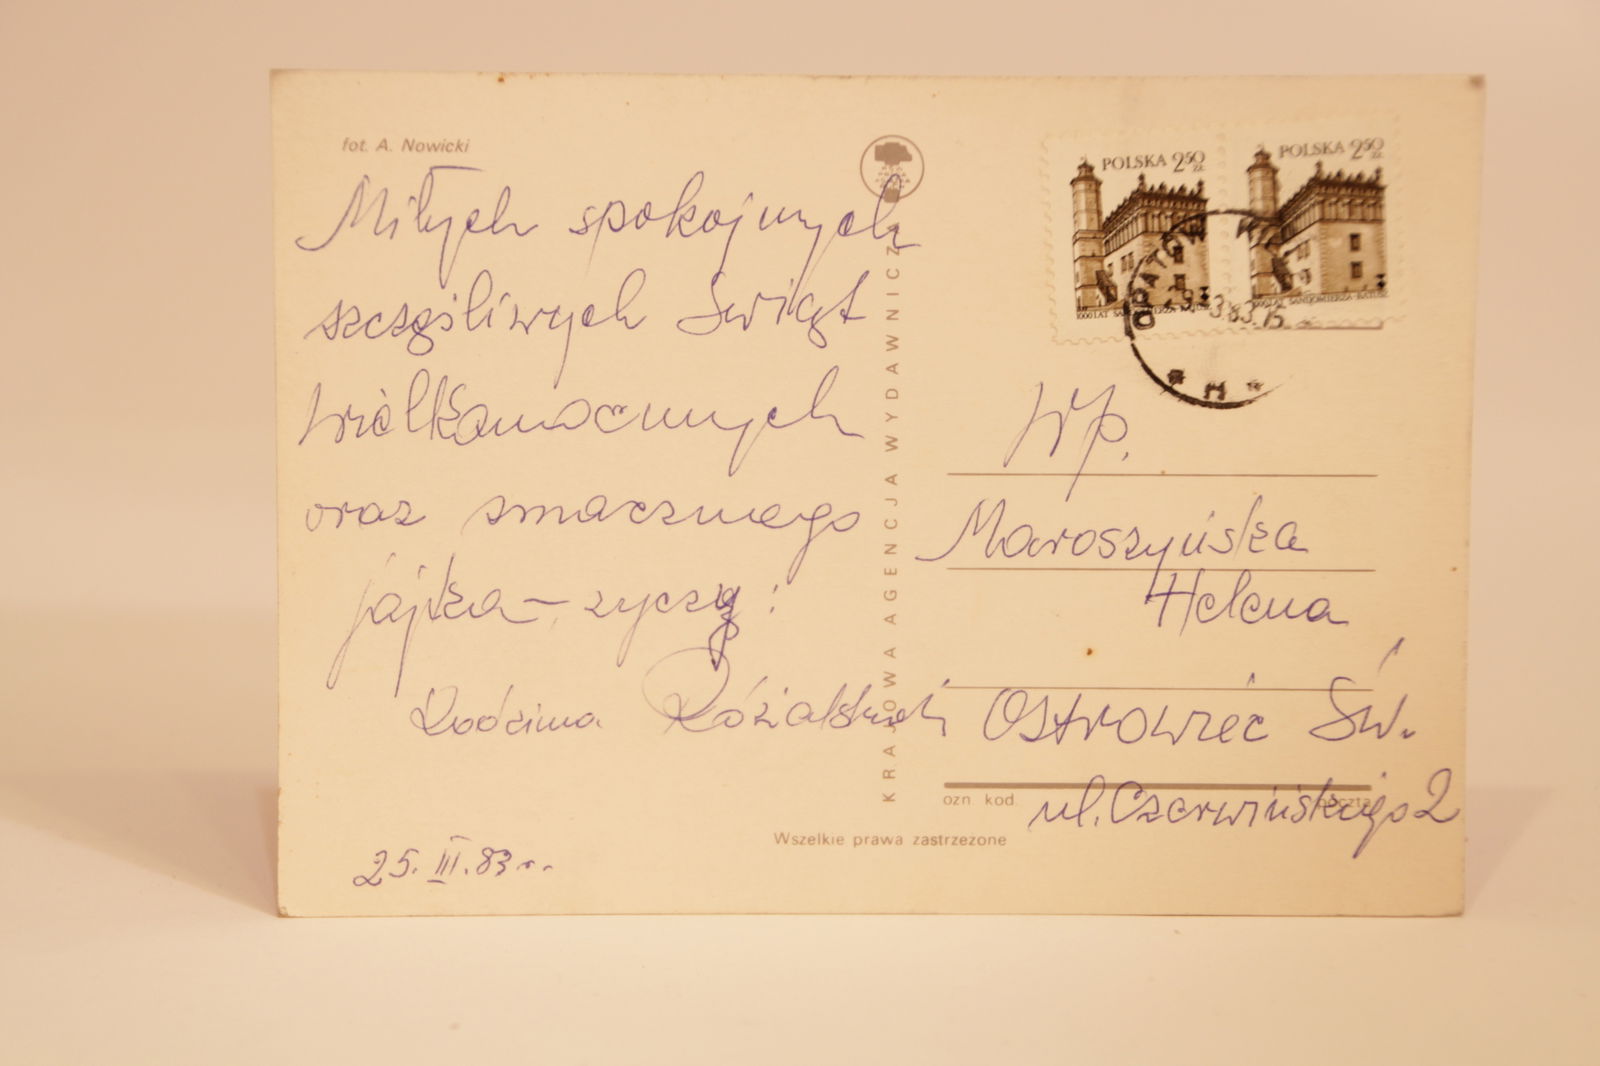 fot. A. Nowicki
Miłych spokojnych
szczęśliwych Świąt
Wielkanocnych
oraz smacznego
jajka – życzą:
Rodzina
25. III. 83 r.
KRAJOWA AGENCJA WYDAWNICZA
Wszelkie prawa zastrzeżone
POLSKA 250 ZŁ
1000 LAT SANDOMIERZA-RATUSZ
POLSKA 250 ZŁ
1000 LAT SANDOMIERZA-RATUSZ
OPATÓW
3.83.15
Wp.
Maroszyńska
Helena
Ostrowiec Św.
ozn. kod. poczta
ul. Czerwińskiego 2